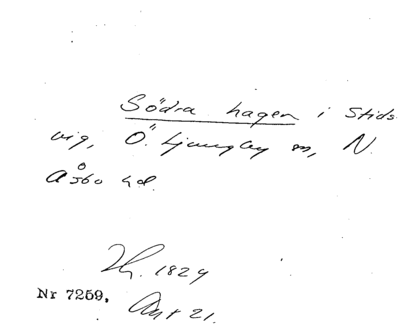 Södra hagen i Stids
vig, Ö. Ljungby sn, N.
Åsbo hd.
1824
Nr 7259. Akt 21.